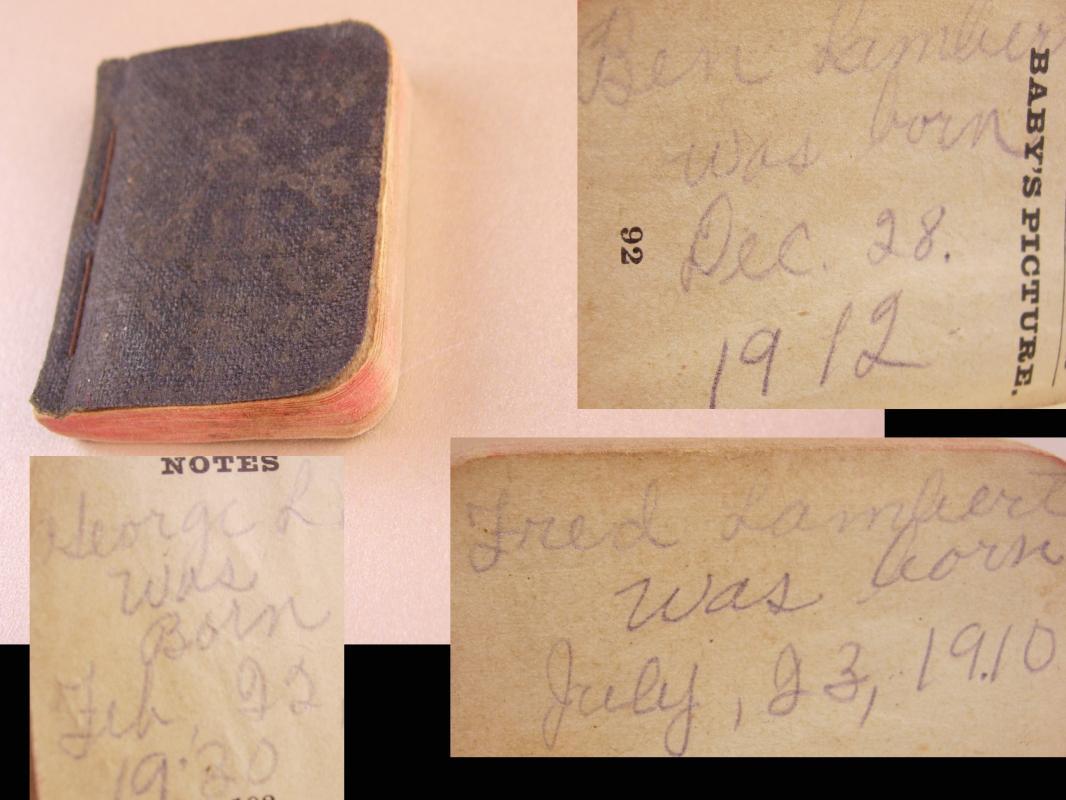 Ben Lambert
was born
Dec. 28.
1912
92
BABY'S PICTURE.
NOTES
George L
was
Born
Feb 22
19'20
Fred Lambert
was born
July, 23, 19.10